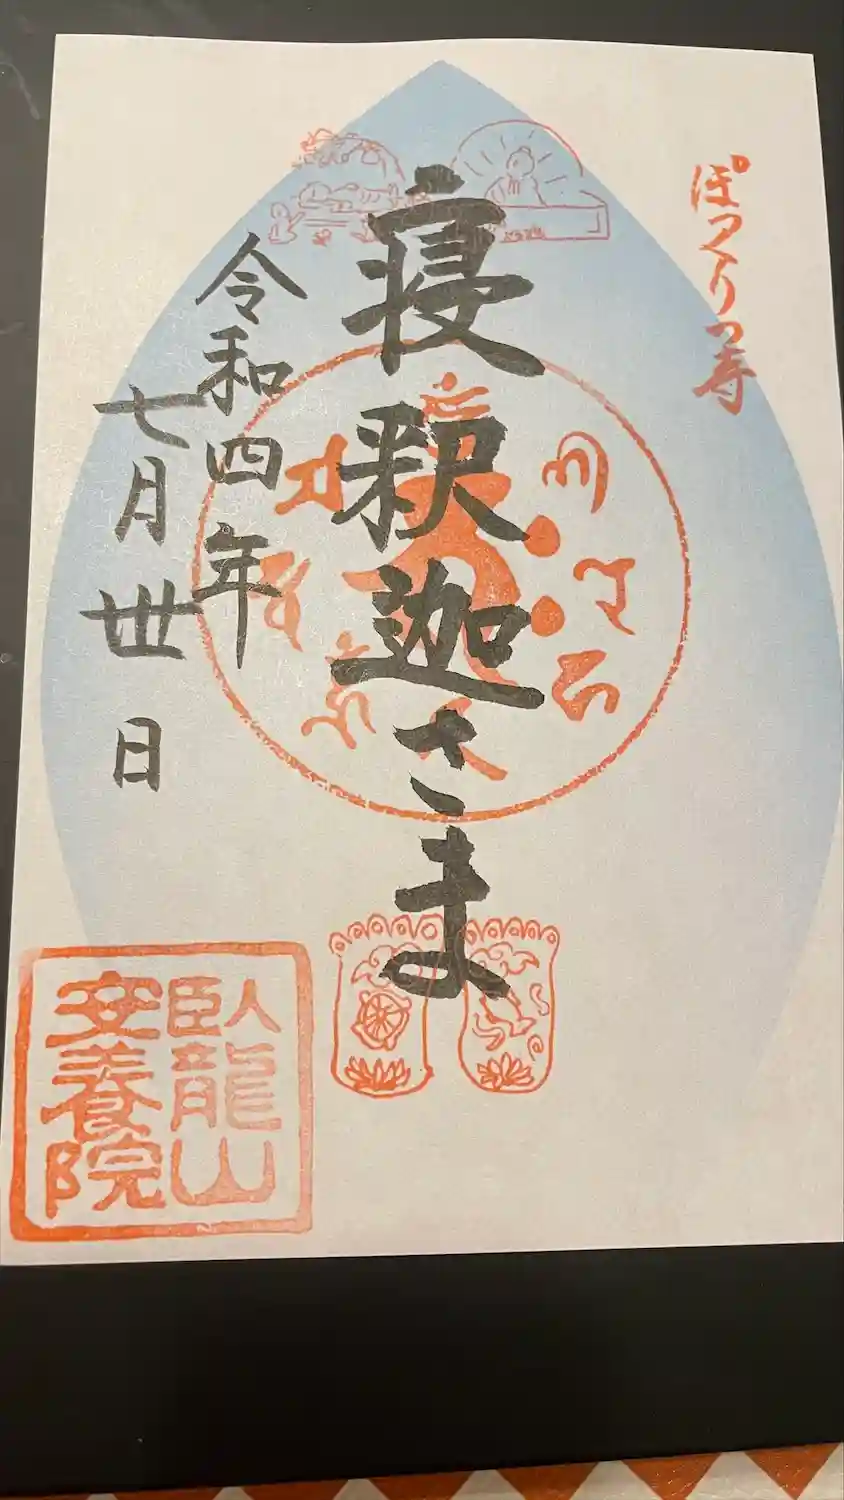 ぽっくりっ寺
寝釈迦さま
令和四年
七月丗日
臥龍山
安養院